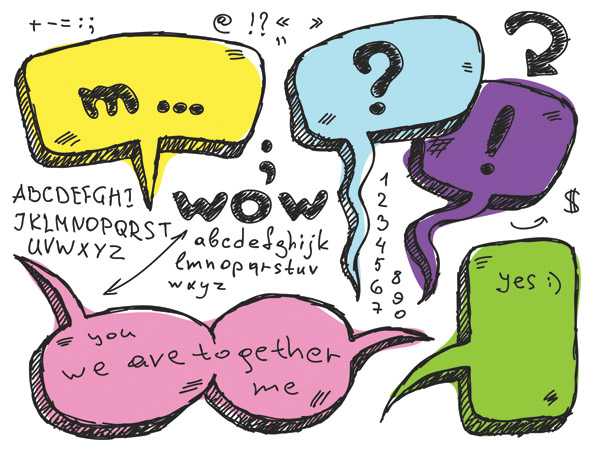 + - = : ;
@ !? « »
"
m...
?
!
;
wow
ABCDEFGHI
JKLMNOPQRST
UVWXYZ
abcdefghijk
lmnopqrstuv
wxyz
1
2
3
4
5
6
7
8
9
0
$
yes :)
you
we are together
me